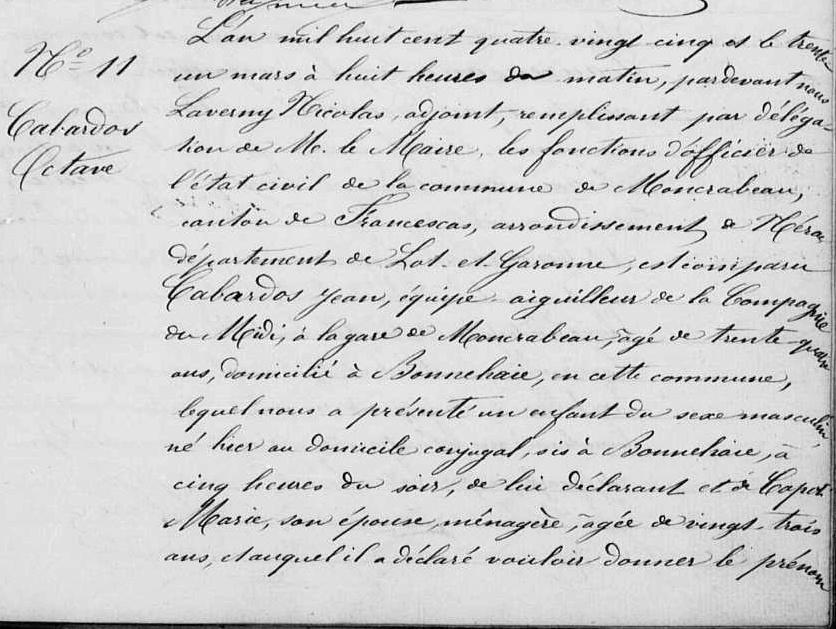 L'an mil huit cent quatre-vingt-cinq et le trente
N° 11
un mars à huit heures du matin, pardevant nous
Laverny Nicolas, adjoint, remplissant par déléga-
Cabardos
tion de M. le Maire, les fonctions d'officier de
Octave
l'état civil de la commune de Moncrabeau,
canton de Francescas, arrondissement de Nérac
département de Lot-et-Garonne, est comparu
Cabardos Jean, équipe aiguilleur de la Compagnie
du Midi, à la gare de Moncrabeau, âgé de trente quatre
ans, domicilié à Bonnehaie, en cette commune,
lequel nous a présenté un enfant du sexe masculin,
né hier au domicile conjugal, sis à Bonnehaie, à
cinq heures du soir, de lui déclarant et de Capot
Marie, son épouse, ménagère, âgée de vingt-trois
ans, et auquel il a déclaré vouloir donner le prénom